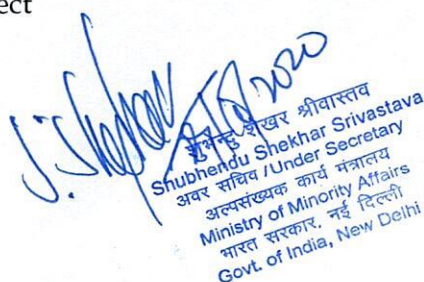 ect
S. Shekhar
2020
शुभेन्दु शेखर श्रीवास्तव
Shubhendu Shekhar Srivastava
अवर सचिव /Under Secretary
अल्पसंख्यक कार्य मंत्रालय
Ministry of Minority Affairs
भारत सरकार, नई दिल्ली
Govt. of India, New Delhi